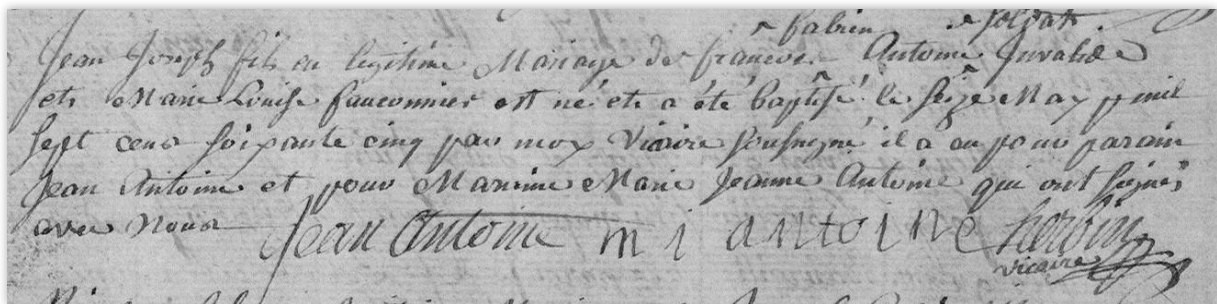 fabien soldat
Jean Joseph fils en legitime Mariage de francois Antoine Invalide
et Marie Louise fauconnier est né et a été baptisé le seize May mil
sept cens soixante cinq par moy Vicaire soussigné il a eu pour parain
Jean Antoine et pour Marainne Marie Jeanne Antoine qui ont signés
avec Nous Jean Antoine m j antoine herbin
vicaire